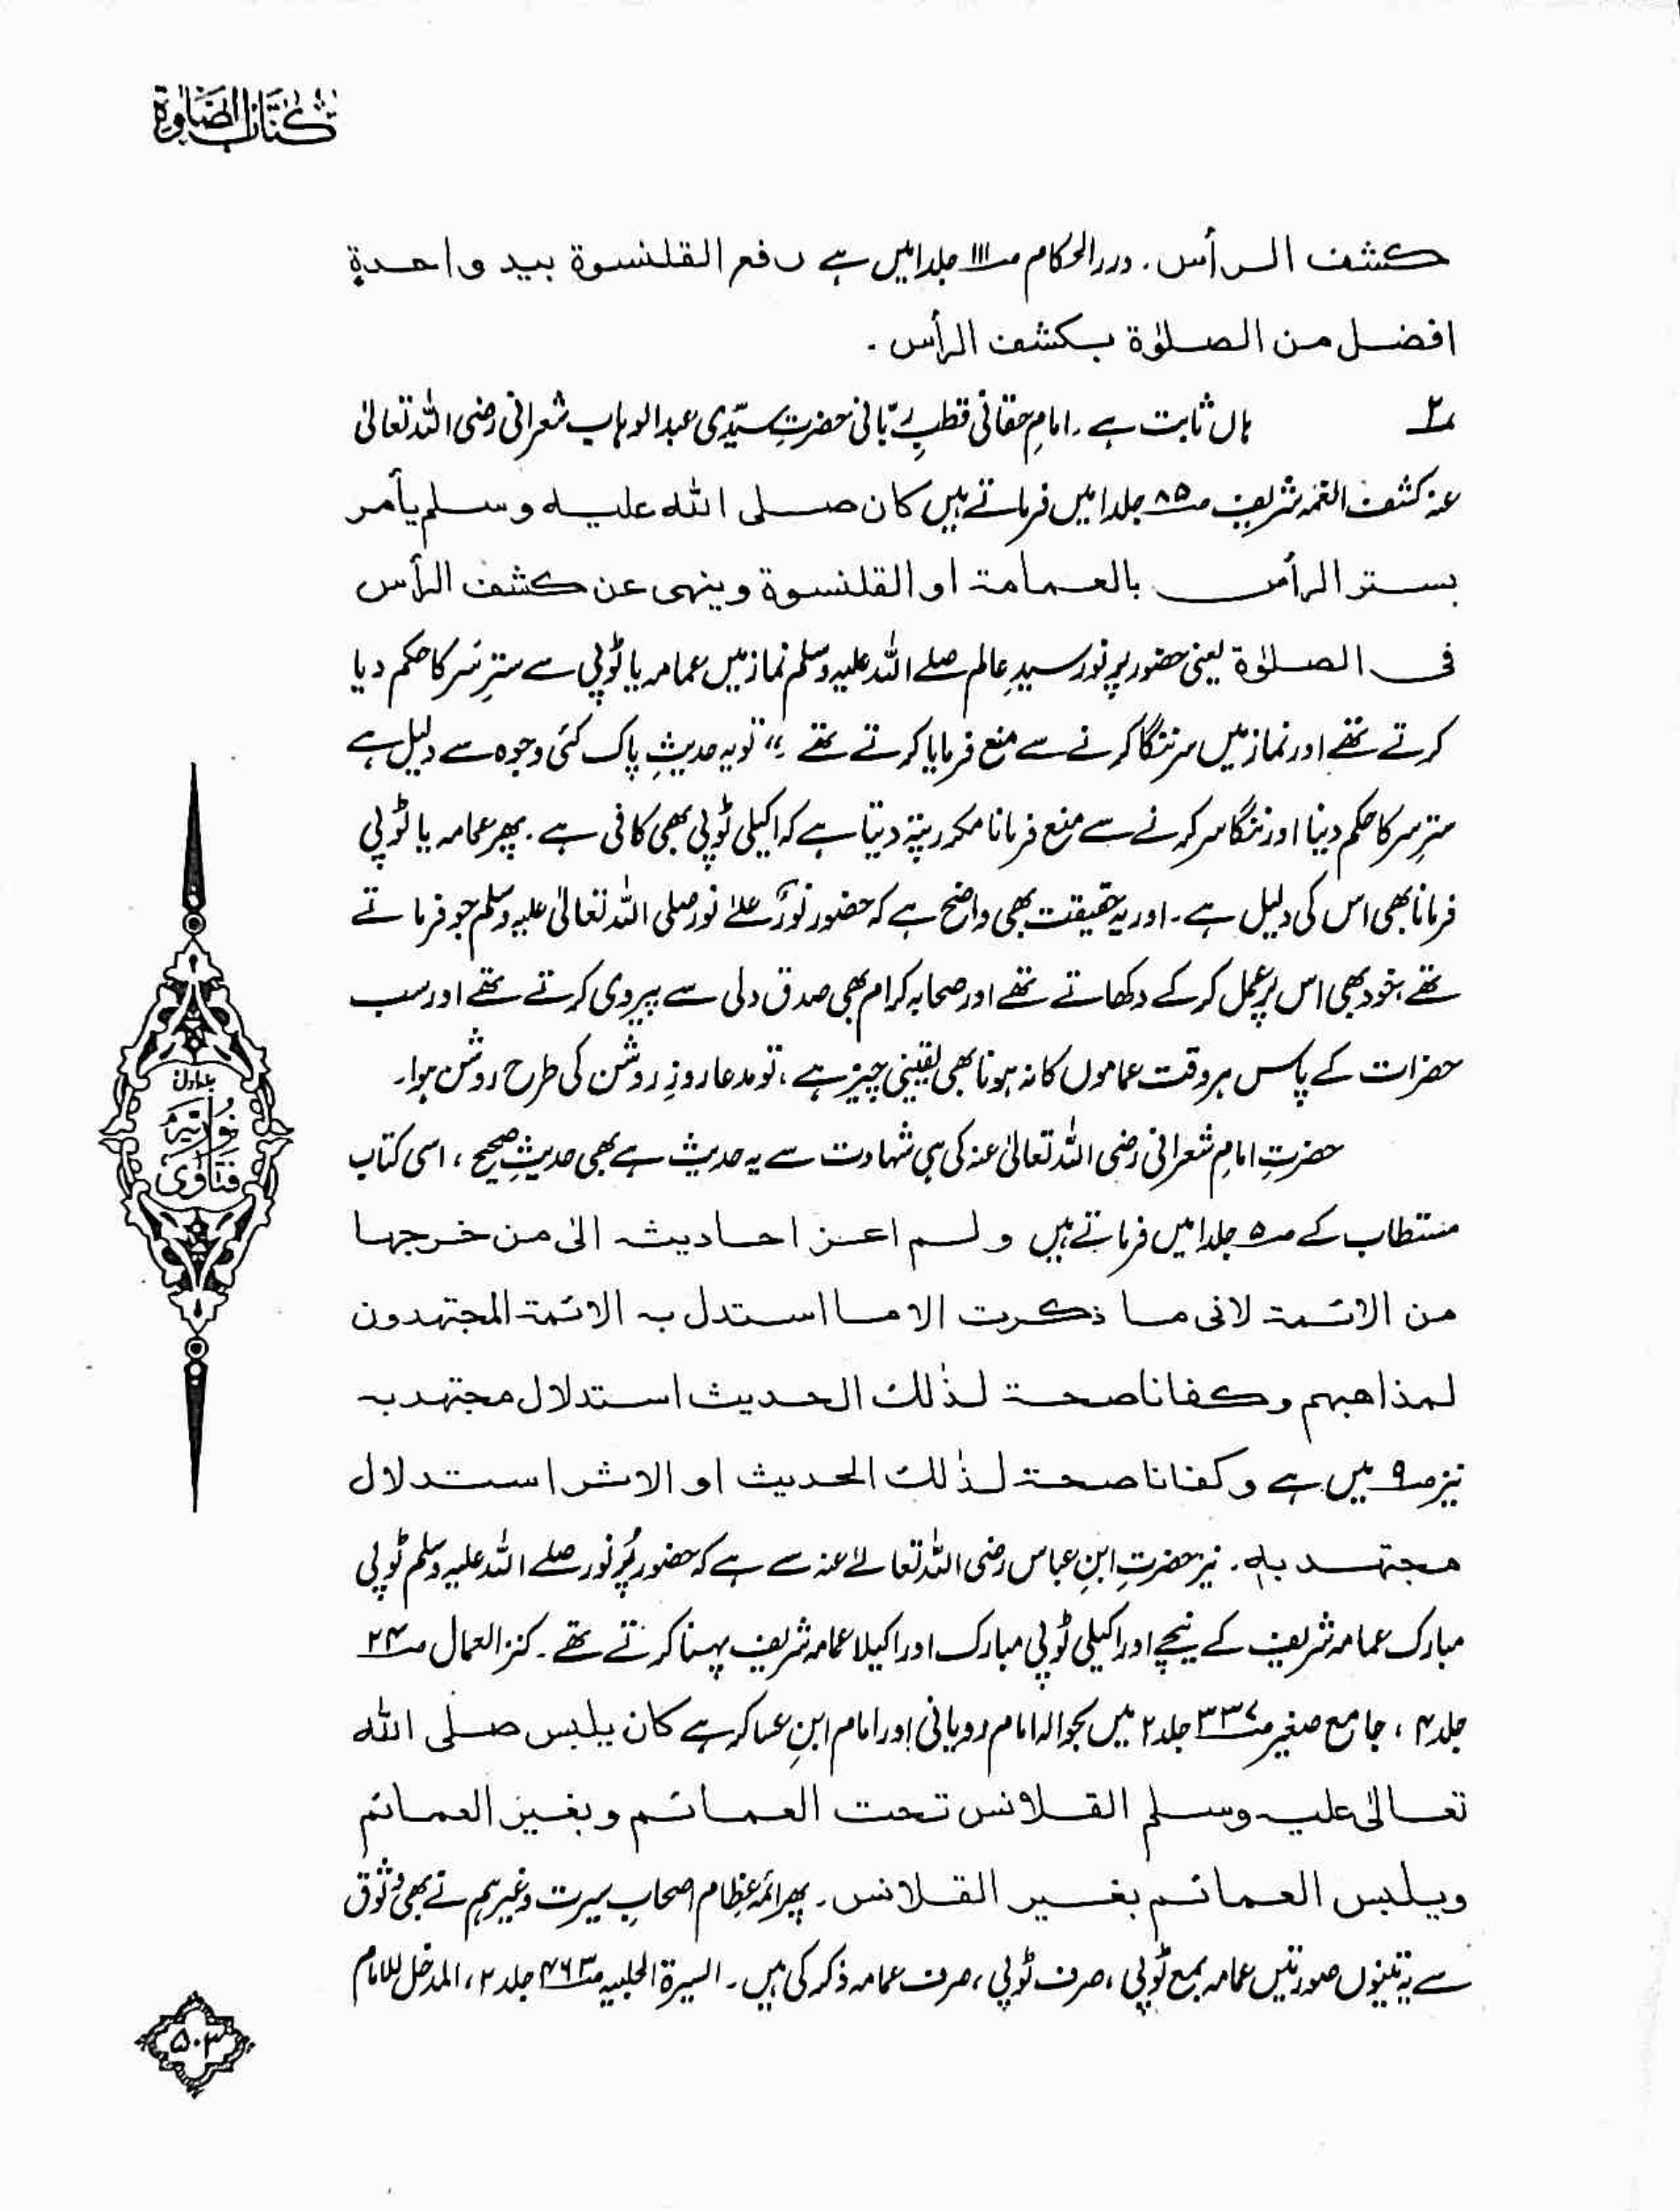 كتاب الصلوة
كشف الرأس ۔ درر الحکام ص۱۱۱ جلد۱ میں ہے رفع القلنسوة بيد واحدة
افضل من الصلوٰة بكشف الرأس ۔
۲؎ ہاں ثابت ہے ۔ امامِ حقانی قطبِ ربّانی حضرتِ سیّدی عبدالوہاب شعرانی رضی اللہ تعالیٰ
عنہ کشف الغمہ شریف ص۸۵ جلد۱ میں فرماتے ہیں كان صلى الله عليه وسلم يأمر
بستر الرأس بالعمامة او القلنسوة وينهى عن كشف الرأس
فى الصلوٰة یعنی حضور پرنور سیدِ عالم صلے اللہ علیہ وسلم نماز میں عمامہ یا ٹوپی سے سترِ سَر کا حکم دیا
کرتے تھے اور نماز میں سر ننگا کرنے سے منع فرمایا کرتے تھے ۔“ تو یہ حدیثِ پاک کئی وجوہ سے دلیل ہے
سترِ سر کا حکم دینا اور ننگا سر کرنے سے منع فرمانا مکرر پتہ دیتا ہے کہ اکیلی ٹوپی بھی کافی ہے ۔ پھر عمامہ یا ٹوپی
فرمانا بھی اس کی دلیل ہے ۔ اور یہ حقیقت بھی واضح ہے کہ حضور نورٌ علےٰ نور صلی اللہ تعالیٰ علیہ وسلم جو فرماتے
تھے ،خود بھی اس پر عمل کر کے دکھاتے تھے اور صحابہ کرام بھی صدق دلی سے پیروی کرتے تھے اور سب
حضرات کے پاس ہر وقت عماموں کا نہ ہونا بھی یقینی چیز ہے ، تو مدعا روزِ روشن کی طرح روشن ہوا۔
حضرتِ امامِ شعرانی رضی اللہ تعالیٰ عنہ کی ہی شہادت سے یہ حدیث ہے بھی حدیثِ صحیح ، اسی کتاب
مستطاب کے ص۵ جلد۱ میں فرماتے ہیں ولم اعز احاديثه الىٰ من خرجها
من الائمة لانى ما ذكرت الا ما استدل به الائمة المجتهدون
لمذاهبهم وكفانا صحة لذٰلك الحديث استدلال مجتهد به
نیز ص۹ میں ہے وكفانا صحة لذٰلك الحديث او الاثر استدلال
مجتهد به ۔ نیز حضرتِ ابنِ عباس رضی اللہ تعالےٰ عنہ سے ہے کہ حضور پُرنور صلے اللہ علیہ وسلم ٹوپی
مبارک عمامہ شریف کے نیچے اور اکیلی ٹوپی مبارک اور اکیلا عمامہ شریف پہنا کرتے تھے ۔ کنز العمال ص۲۴
جلد۴ ، جامع صغیر ص۳۳۷ جلد۲ میں بحوالہ امام رویانی اور امام ابنِ عساکر ہے كان يلبس صلى الله
تعالىٰ عليه وسلم القلانس تحت العمائم وبغير العمائم
ويلبس العمائم بغير القلانس ۔ پھر ائمہ عظام اصحابِ سیرت وغیرہم نے بھی وثوق
سے یہ تینوں صورتیں عمامہ بمع ٹوپی ، صرف ٹوپی ، صرف عمامہ ذکر کی ہیں ۔ السیرۃ الحلبیہ ص۴۶۳ جلد ۲ ، المدخل للامام
جلد اول
نوریہ
فتاویٰ
۵۰۳